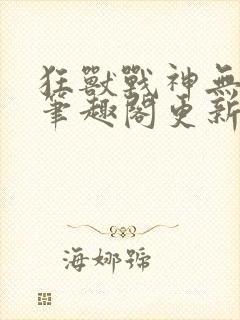 狂獸戰神無
筆趣閣更新
海娜號